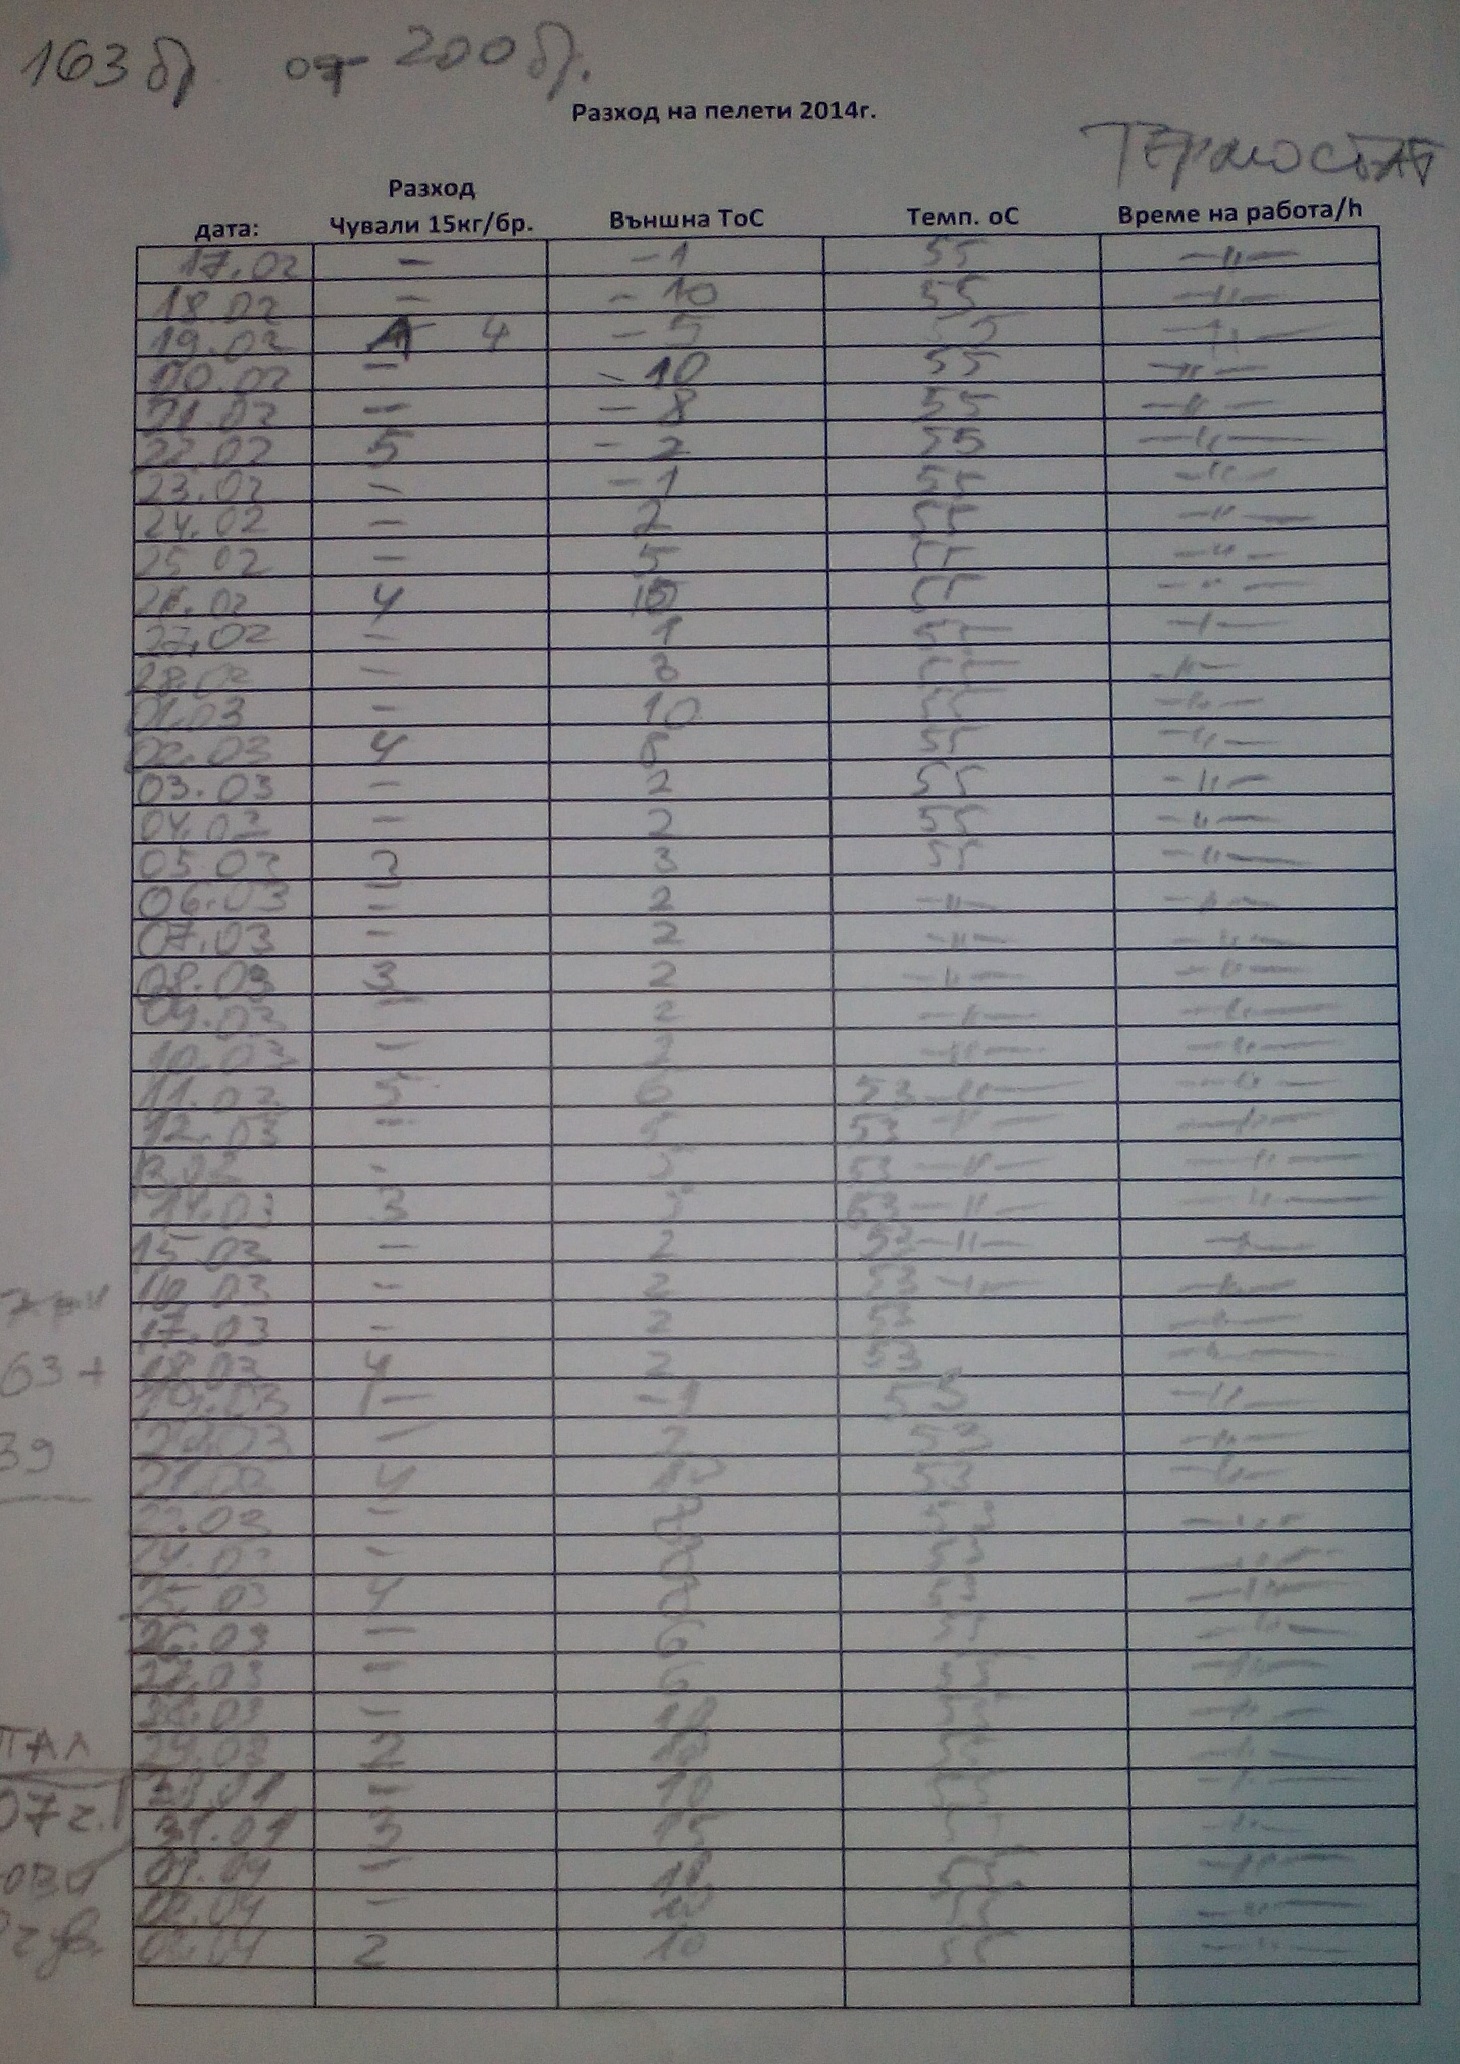 163 бр. от 200 бр.
Разход на пелети 2014г.
Термостат
Разход
дата: Чували 15кг/бр. Външна ТоС Темп. оС Време на работа/h
17.02 — -1 55 —"—
18.02 — -10 55 —"—
19.02 4 -5 55 —"—
20.02 — -10 55 —"—
21.02 — -8 55 —"—
22.02 5 -2 55 —"—
23.02 — -1 55 —"—
24.02 — 2 55 —"—
25 02 — 5 55 —"—
26.02 4 55 —"—
27.02 — 1 55 —"—
28.02 — 3 55 —"—
01.03 — 10 55 —"—
02.03 4 8 55 —"—
03.03 — 2 55 —"—
04.03 — 2 55 —"—
05.03 3 3 55 —"—
06.03 — 2 —"— —"—
07.03 — 2 —"— —"—
08.03 3 2 —"— —"—
09.03 — 2 —"— —"—
10.03 — 2 —"— —"—
11.03 5 6 53 —"— —"—
12.03 — 5 53 —"— —"—
13.03 — 5 53 —"— —"—
14.03 3 53 —"— —"—
15.03 — 2 53 —"— —"—
16.03 — 2 53 —"— —"—
17.03 — 2 53 —"—
63 + 18.03 4 2 53 —"—
19.03 — -1 53 —"—
39 20.03 — 2 53 —"—
21.03 4 53 —"—
— 53 —"—
24.03 — 8 53 —"—
25.03 4 8 53 —"—
26.03 — 6 53 —"—
27.03 — 6 53 —"—
28.03 — 10 53 —"—
29.03 2 10 53 —"—
— 10 53 —"—
07 ч. 31.01 3 15 —"—
01.04 — 53 —"—
02.04 — 10 53 —"—
2 10 —"—